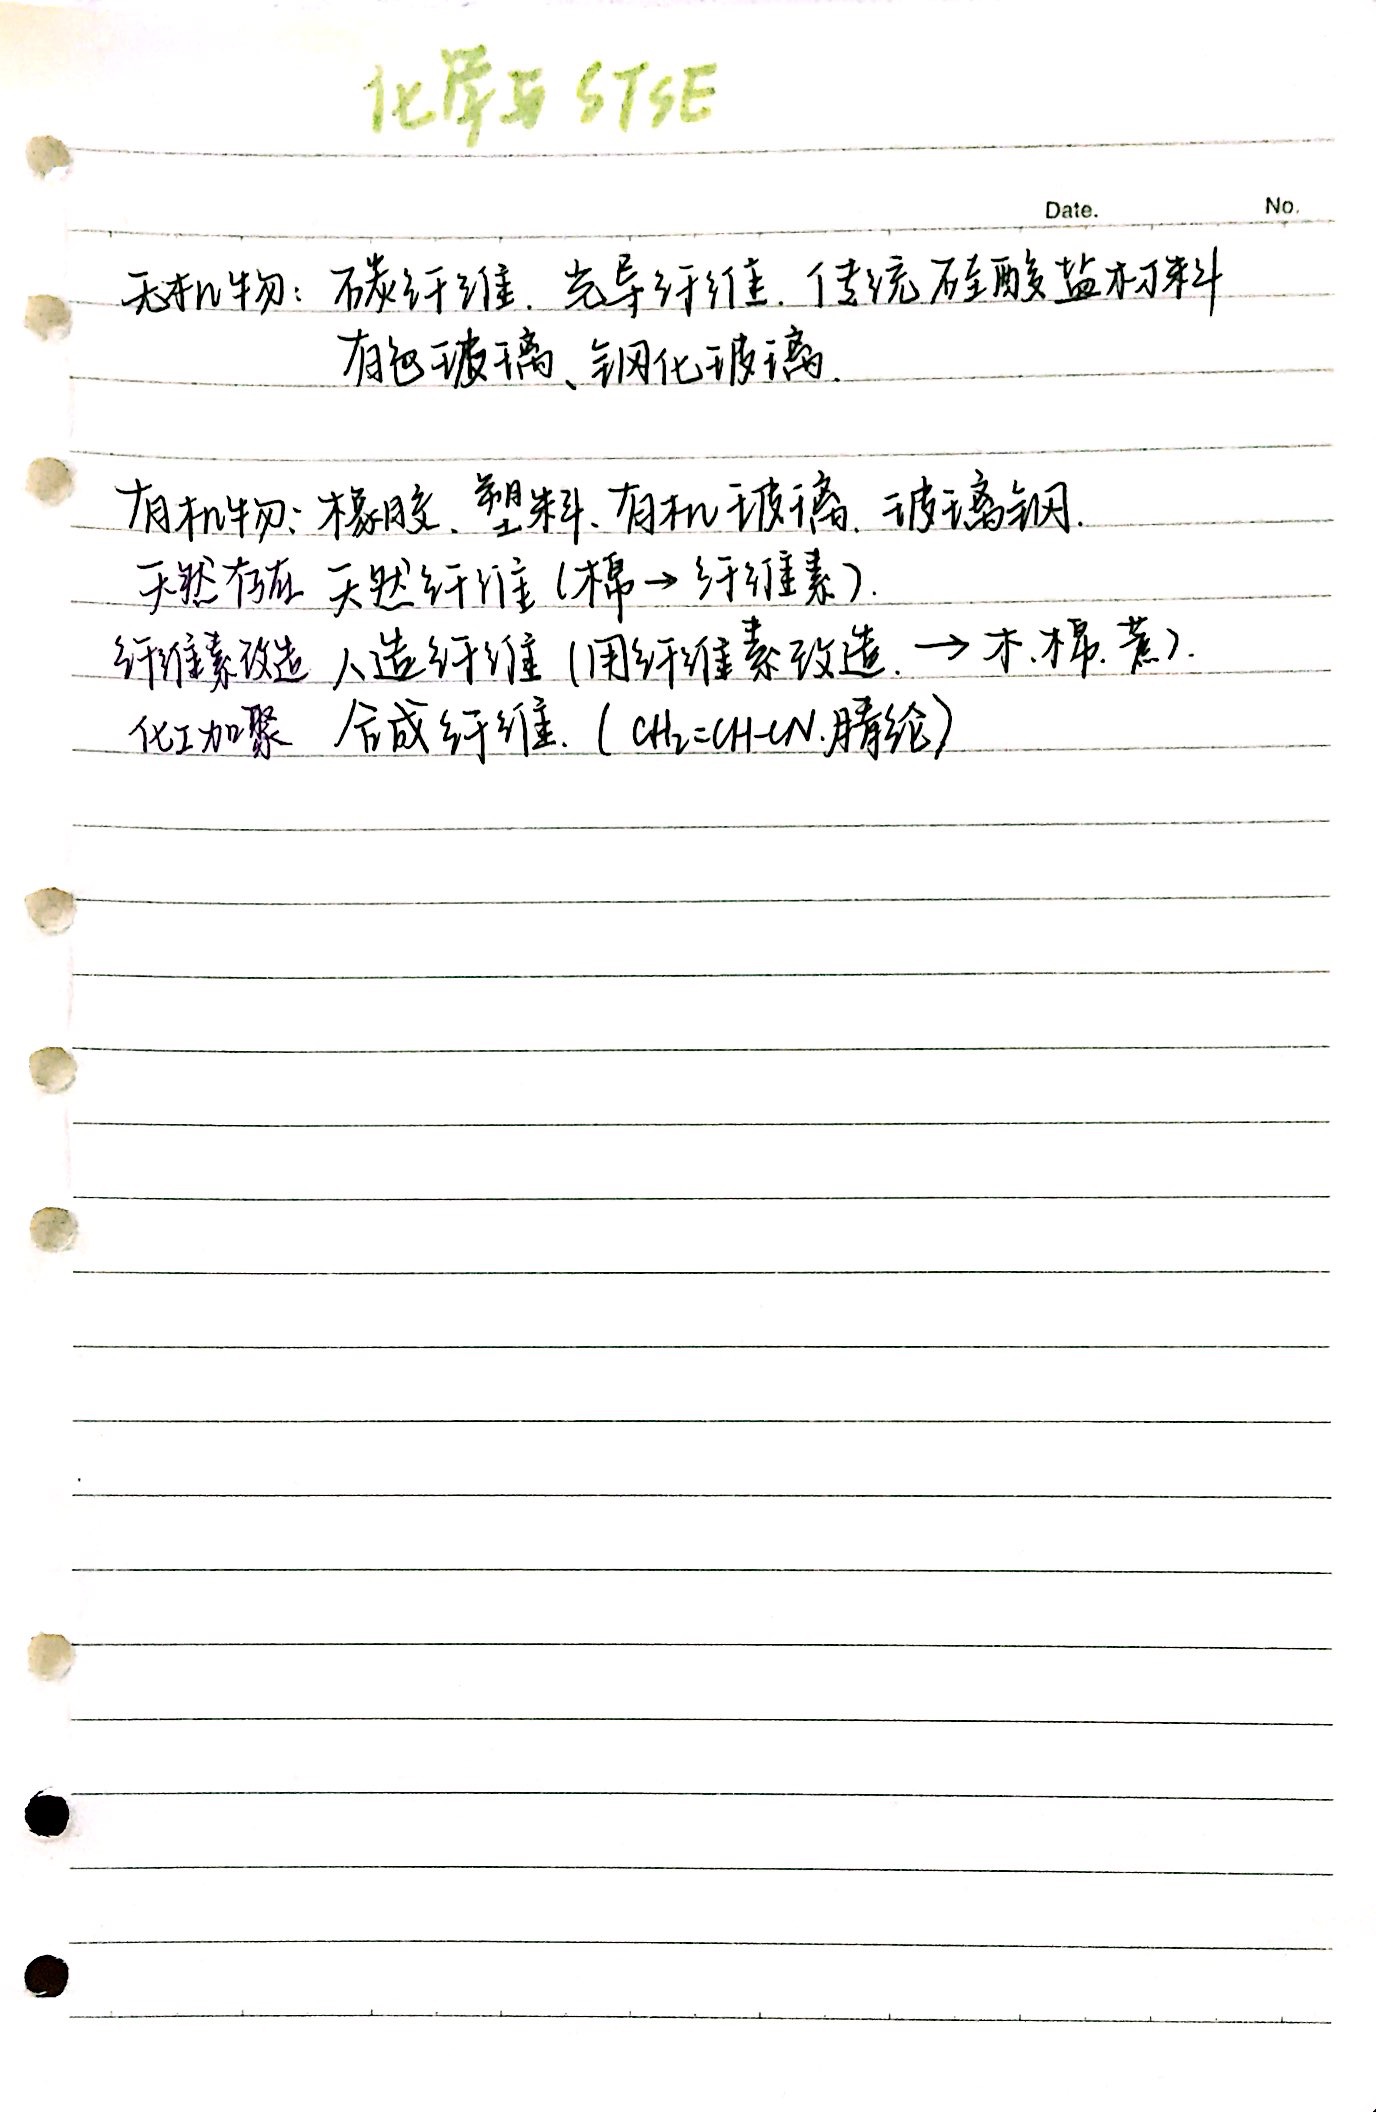 化学与STSE
Date. No.
无机物: 碳纤维. 光导纤维. 传统硅酸盐材料
有色玻璃、钢化玻璃.
有机物: 橡胶、塑料、有机玻璃. 玻璃钢.
天然存在 天然纤维 (棉→纤维素).
纤维素改造 人造纤维 (用纤维素改造. → 木.棉.蔗).
化工加聚 合成纤维. (CH₂=CH-CN.腈纶)